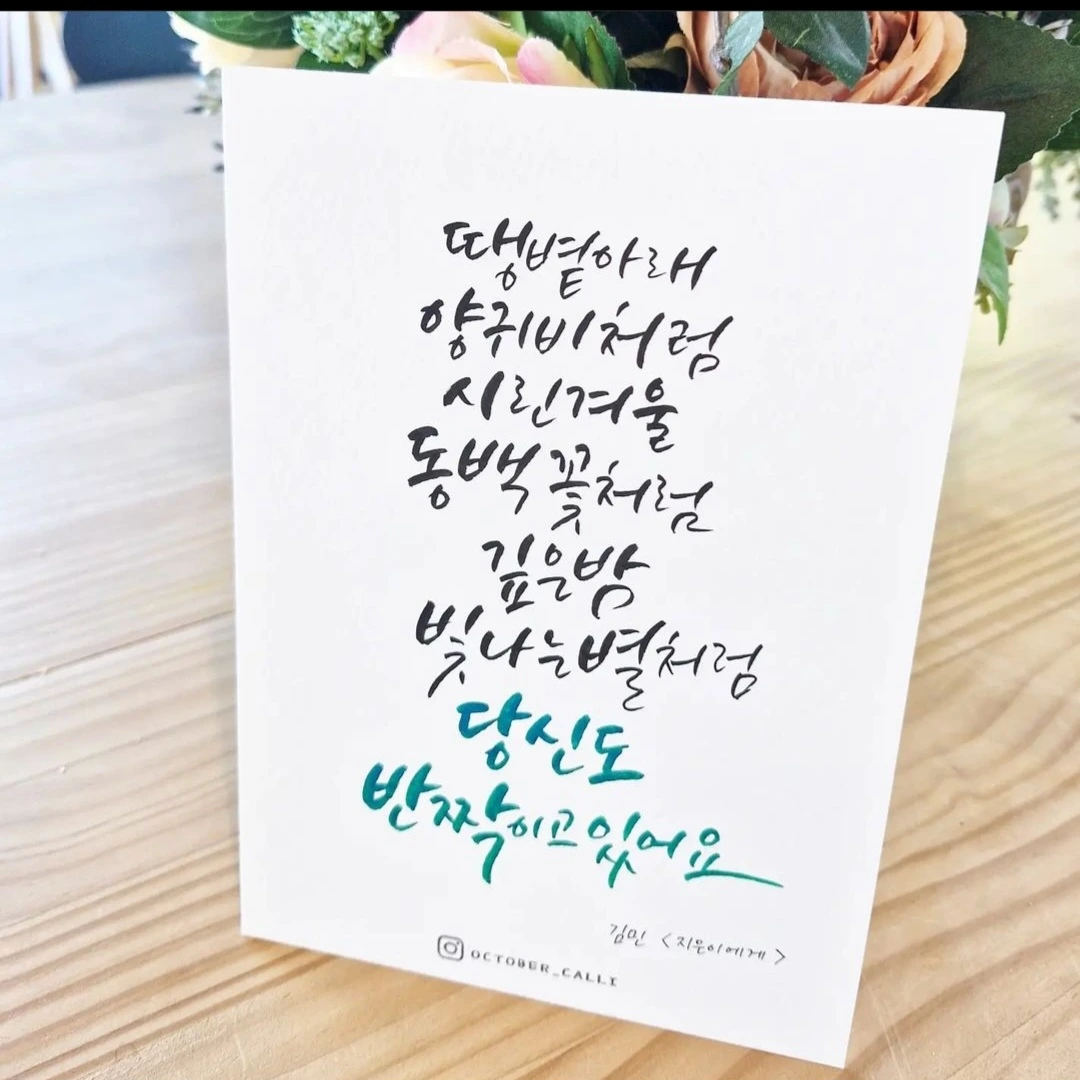 땡볕아래
양귀비처럼
시린겨울
동백꽃처럼
깊은밤
빛나는별처럼
당신도
반짝이고있어요
김민 <지은이에게>
OCTOBER_CALLI